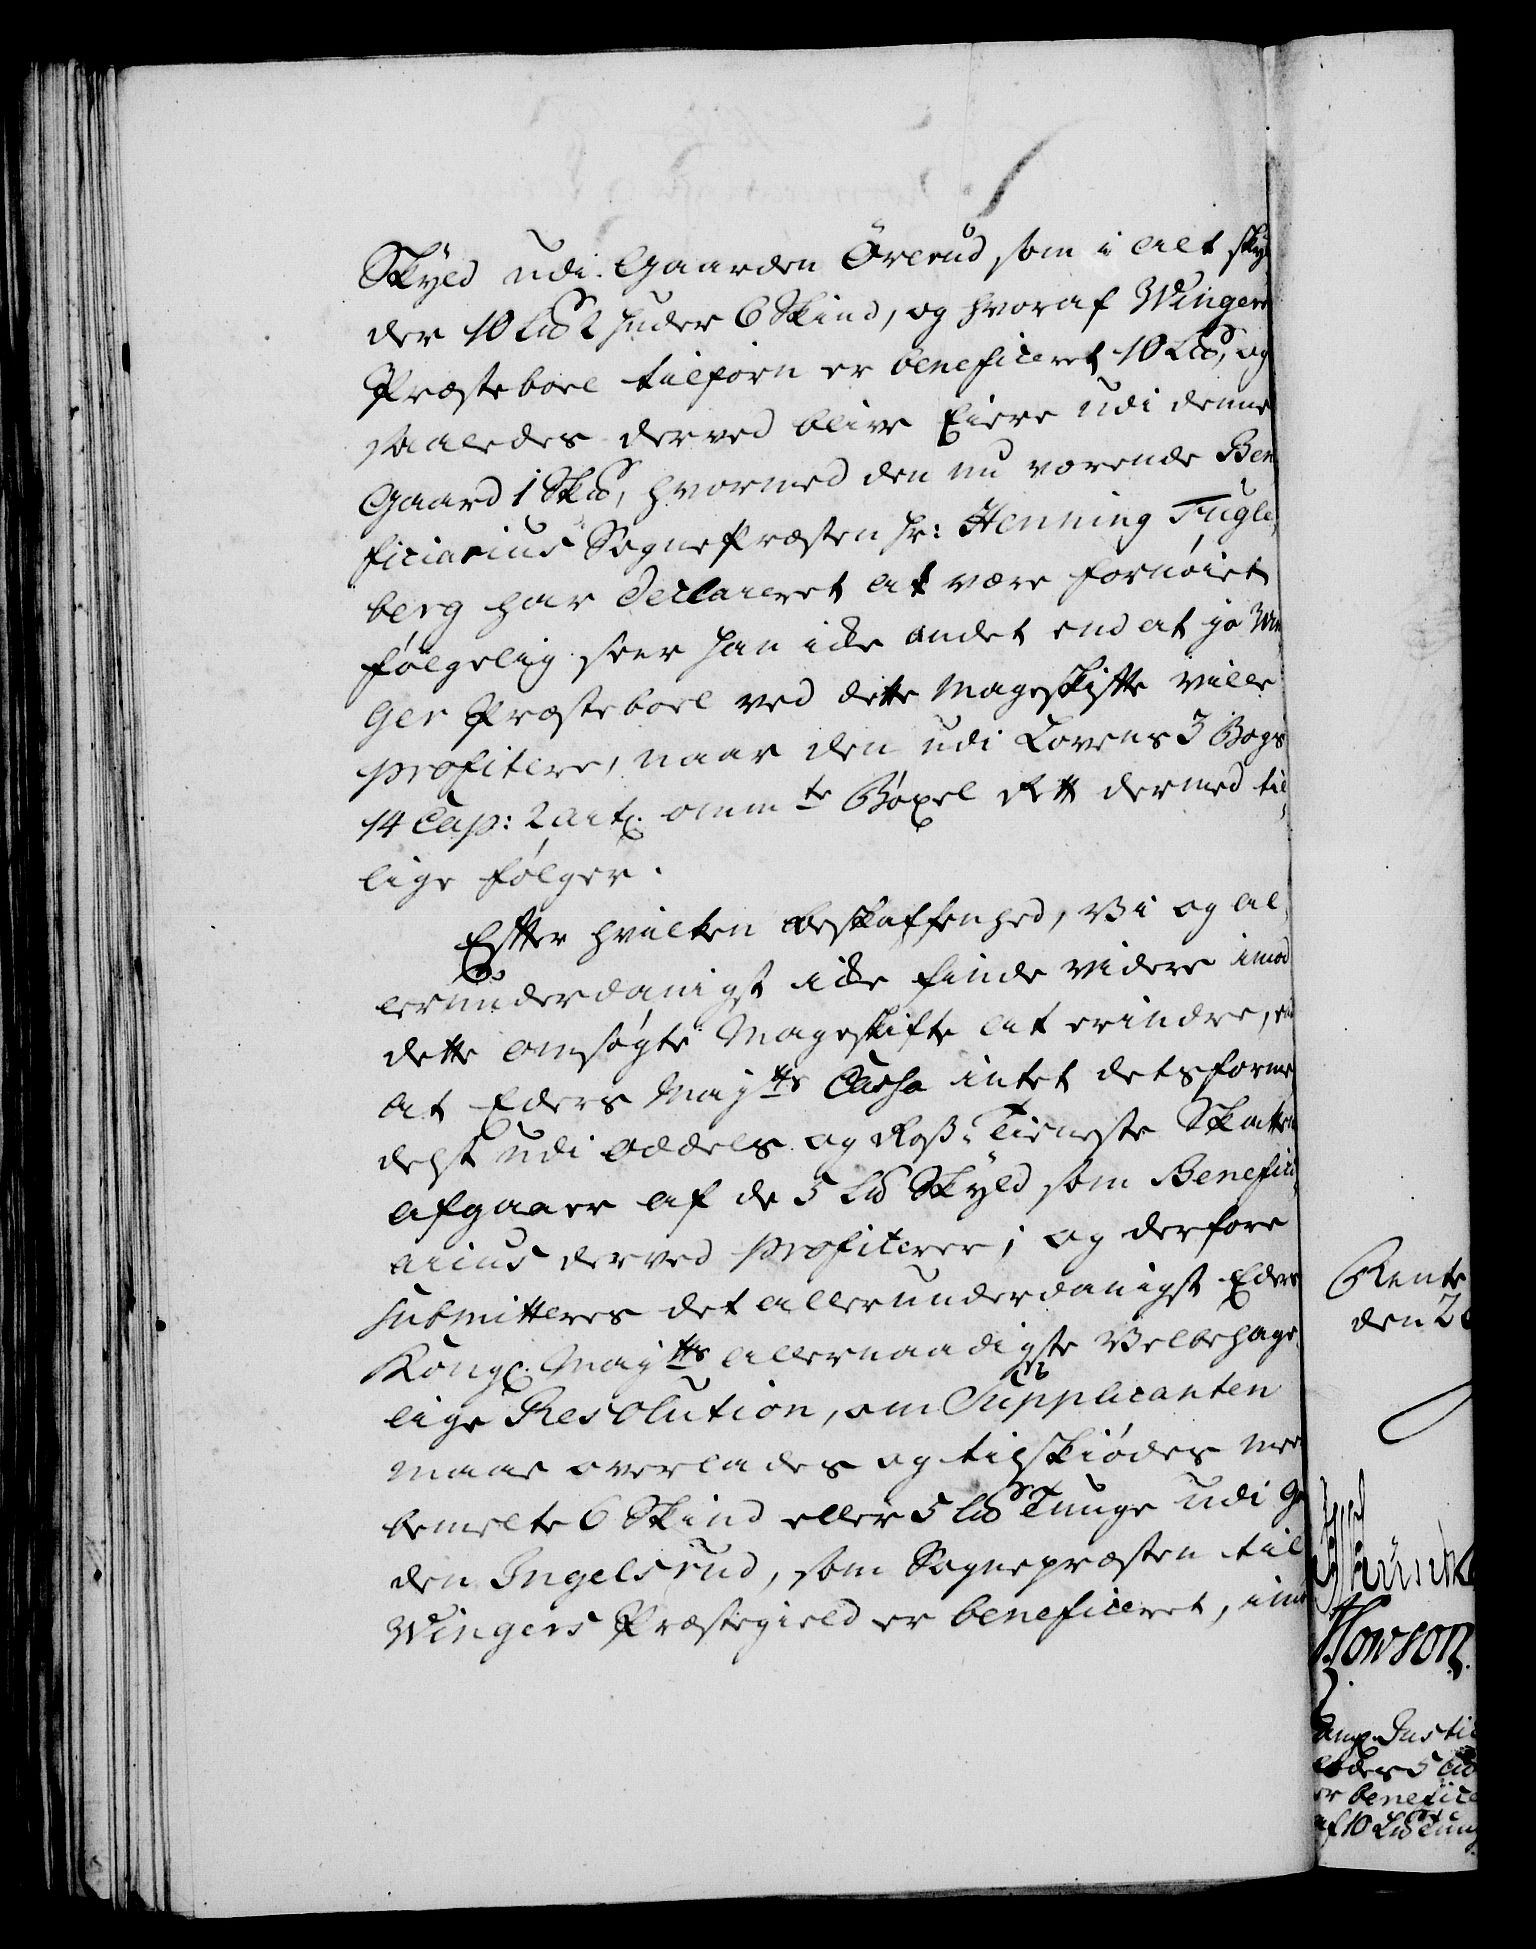 Skyld udi Gaarden Örerud som i alt sky¬
der 10 Lid 2 huder 6 Skind, og hvoraf Winger
Præsteboel tilforn er beneficeret 10 Lid, og
saaledes derved bliver Eiere udi denne
Gaard 1 Skd, hvormed den nu værende Ben
ficiarius Sogne Præsten hr: Henning Fugle¬
berg har declareret at være fornöiet
fölgelig seer han icke andet end at jo Win
ger Præsteboel ved dette Mageskiftte ville
profitere, naar den udi Lovens 3 Bogs
14 Cap: 2 art: omm te Böxel Rett dermed til¬
lige fölger.
Eftter hvilken beskaffenhed, Vi og al¬
lerunderdanigst icke finde videre imod
dette omsögte Mageskifte at erindre, end
at Eders May tts Cassa intet detsforme
delst udi Oddels og Ross-Tieneste Skatten
afgaaer af de 5 Lid Skyld som Benefici¬
arius derved profiterer; og derfore
submitteres det allerunderdanigst Eders
Kongl. May tts allernaadigste Velbehage¬
lige Resolution, om Supplicanten
maae overlades og tilskiödes meer
bemelte 6 Skind eller 5 Lid Tunge udi Ga
den Ingelsrud, som Sognepræsten til
Wingers Præstegield er beneficeret, imod
Rente
den 2
Howson.
Justi
5 Lid
er benefice
af 10 Lid Tung